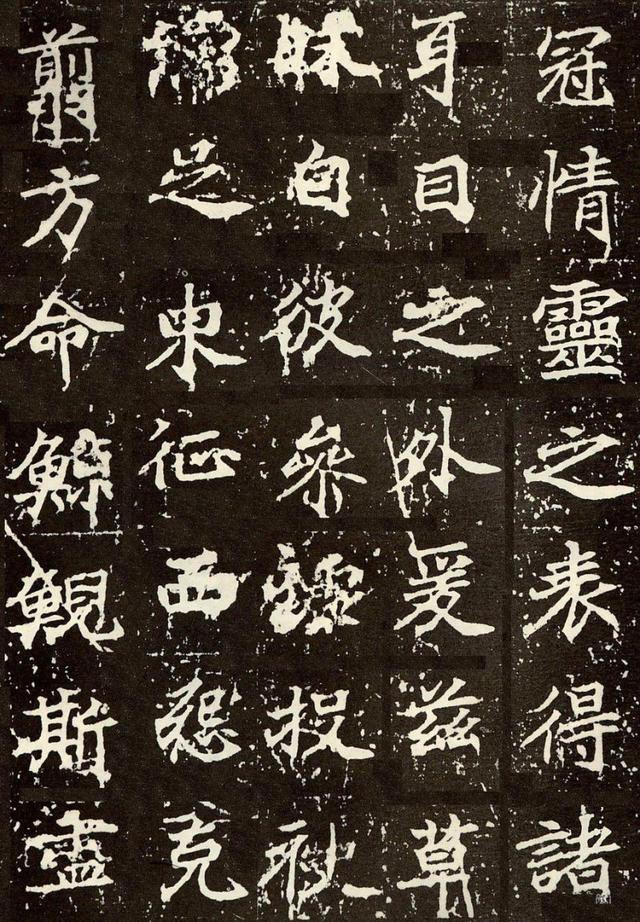 冠情靈之表得諸
耳目之外爰茲草
昧自彼參墟投袂
濡足東征西怨克
翦方命鯨鯢斯盡